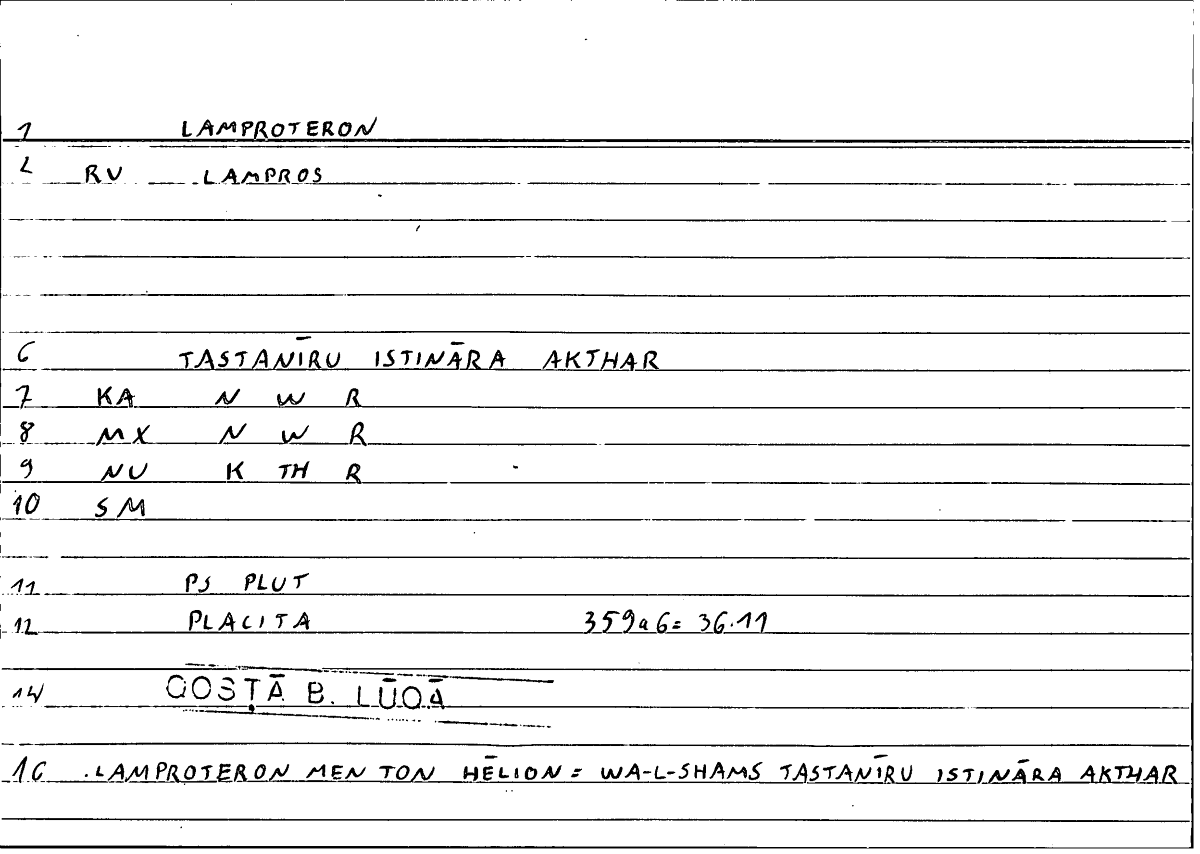 1 LAMPROTERON
2 RV LAMPROS
6 TASTANĪRU ISTINĀRA AKTHAR
7 KA N W R
8 MX N W R
9 NU K TH R
10 SM
11 PS PLUT
12 PLACITA 359a6= 36.11
14 QOSṬĀ B. LŪQĀ
16 LAMPROTERON MEN TON HĒLION = WA-L-SHAMS TASTANĪRU ISTINĀRA AKTHAR